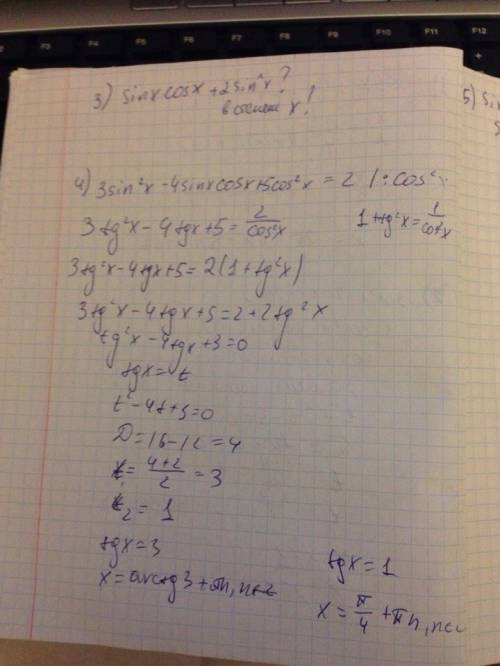 3) sinx cosx + 2sin²x?
в ответе x!
5)
4) 3sin²x - 4sinxcosx+5cos²x = 2 |: cos²x
3tg²x - 4tgx+5 = 2/cos²x
1+tg²x = 1/cos²x
3tg²x - 4tgx+5 = 2(1+tg²x)
3tg²x - 4tgx+5 = 2+2tg²x
tg²x - 4tgx+3=0
tgx = t
t² - 4t+3=0
D = 16-12 = 4
t₁ = (4+2)/2 = 3
t₂ = 1
tgx = 3
x = arctg3 + πn, n∈z
tgx = 1
x = π/4 + πn, n∈z